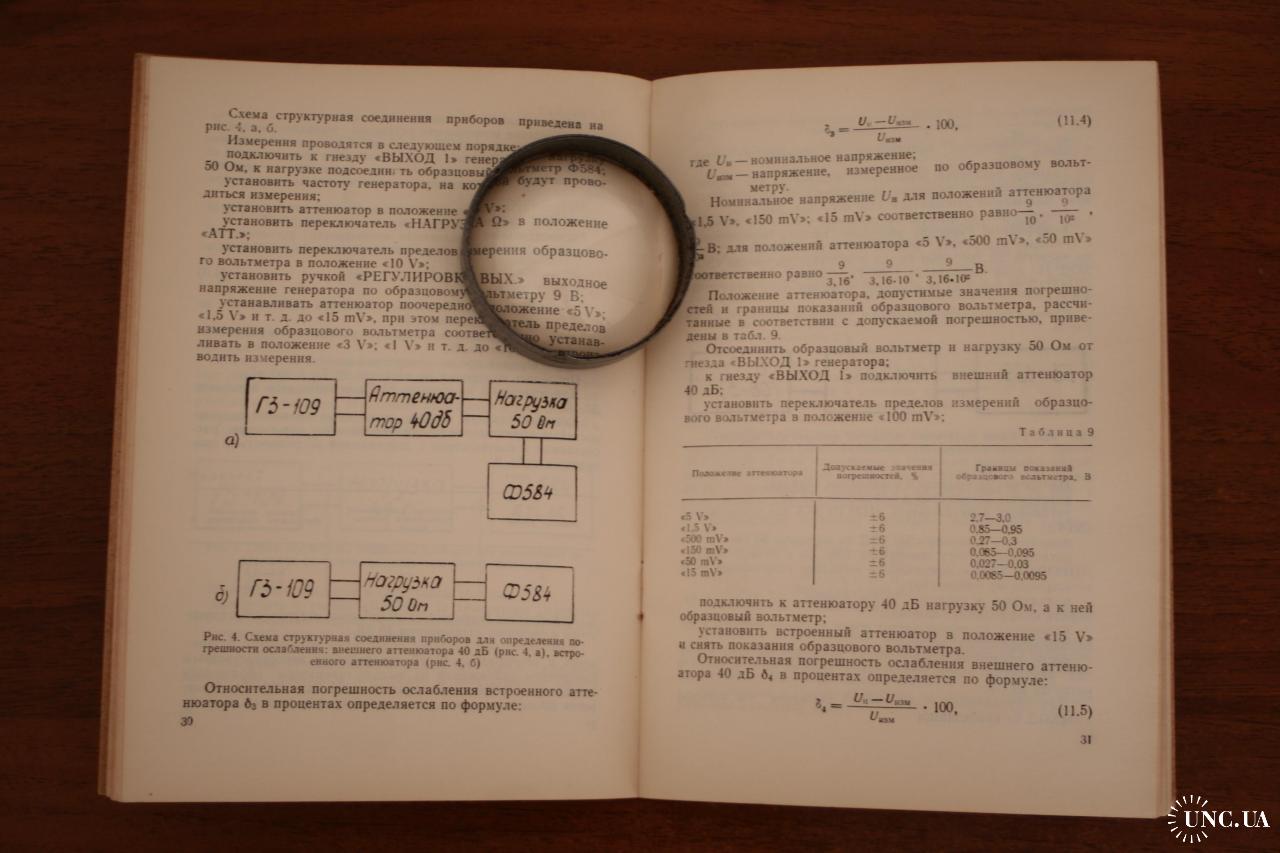 Схема структурная соединения приборов приведена на
рис. 4, а, б.
Измерения проводятся в следующем порядке:
подключить к гнезду «ВЫХОД 1» нагрузку
50 Ом, к нагрузке подсоединить образцовый вольтметр Ф584;
установить частоту генератора, на которой будут прово-
диться измерения;
установить аттенюатор в положение V»;
установить переключатель «НАГРУЗКА Ω» в положение
«АТТ.»;
установить переключатель пределов измерения образцово-
го вольтметра в положение «10 V»;
установить ручкой «РЕГУЛИРОВК ВЫХ.» выходное
напряжение генератора по образцовому вольтметру 9 В;
устанавливать аттенюатор поочередно положение «5 V»;
«1,5 V» и т. д. до «15 mV», при этом переключатель пределов
измерения образцового вольтметра устанав-
ливать в положение «3 V»; «1 V» и т. д. до
водить измерения.
ГЗ-109
Аттенюа-
тор 40дб
Нагрузка
50 Ом
а)
Ф584
б)
ГЗ-109
Нагрузка
50 Ом
Ф584
Рис. 4. Схема структурная соединения приборов для определения по-
грешности ослабления: внешнего аттенюатора 40 дБ (рис. 4, а), встро-
енного аттенюатора (рис. 4, б)
Относительная погрешность ослабления встроенного атте-
нюатора δ₃ в процентах определяется по формуле:
30
δ₃ = (Uн — Uизм) / Uизм · 100, (11.4)
где Uн — номинальное напряжение;
Uизм — напряжение, измеренное по образцовому вольт-
метру.
Номинальное напряжение Uн для положений аттенюатора
«1,5 V», «150 mV»; «15 mV» соответственно равно 9/10, 9/10²,
В; для положений аттенюатора «5 V», «500 mV», «50 mV»
соответственно равно 9/3,16, 9/3,16·10, 9/3,16·10² В.
Положение аттенюатора, допустимые значения погрешно-
стей и границы показаний образцового вольтметра, рассчи-
танные в соответствии с допускаемой погрешностью, приве-
дены в табл. 9.
Отсоединить образцовый вольтметр и нагрузку 50 Ом от
гнезда «ВЫХОД 1» генератора;
к гнезду «ВЫХОД 1» подключить внешний аттенюатор
40 дБ;
установить переключатель пределов измерений образцо-
вого вольтметра в положение «100 mV»;
Таблица 9
Положение аттенюатора
Допускаемые значения
погрешностей, %
Границы показаний
образцового вольтметра, В
«5 V» ±6 2,7—3,0
«1,5 V» ±6 0,85—0,95
«500 mV» ±6 0,27—0,3
«150 mV» ±6 0,085—0,095
«50 mV» ±6 0,027—0,03
«15 mV» ±6 0,0085—0,0095
подключить к аттенюатору 40 дБ нагрузку 50 Ом, а к ней
образцовый вольтметр;
установить встроенный аттенюатор в положение «15 V»
и снять показания образцового вольтметра.
Относительная погрешность ослабления внешнего аттеню-
атора 40 дБ δ₄ в процентах определяется по формуле:
δ₄ = (Uн — Uизм) / Uизм · 100, (11.5)
31
UNC.UA